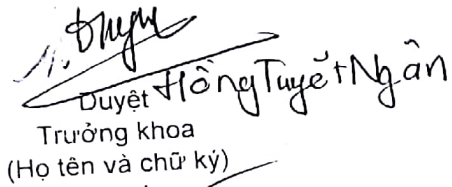 Duyệt Hồng Tuyết Ngân
Trưởng khoa
(Họ tên và chữ ký)